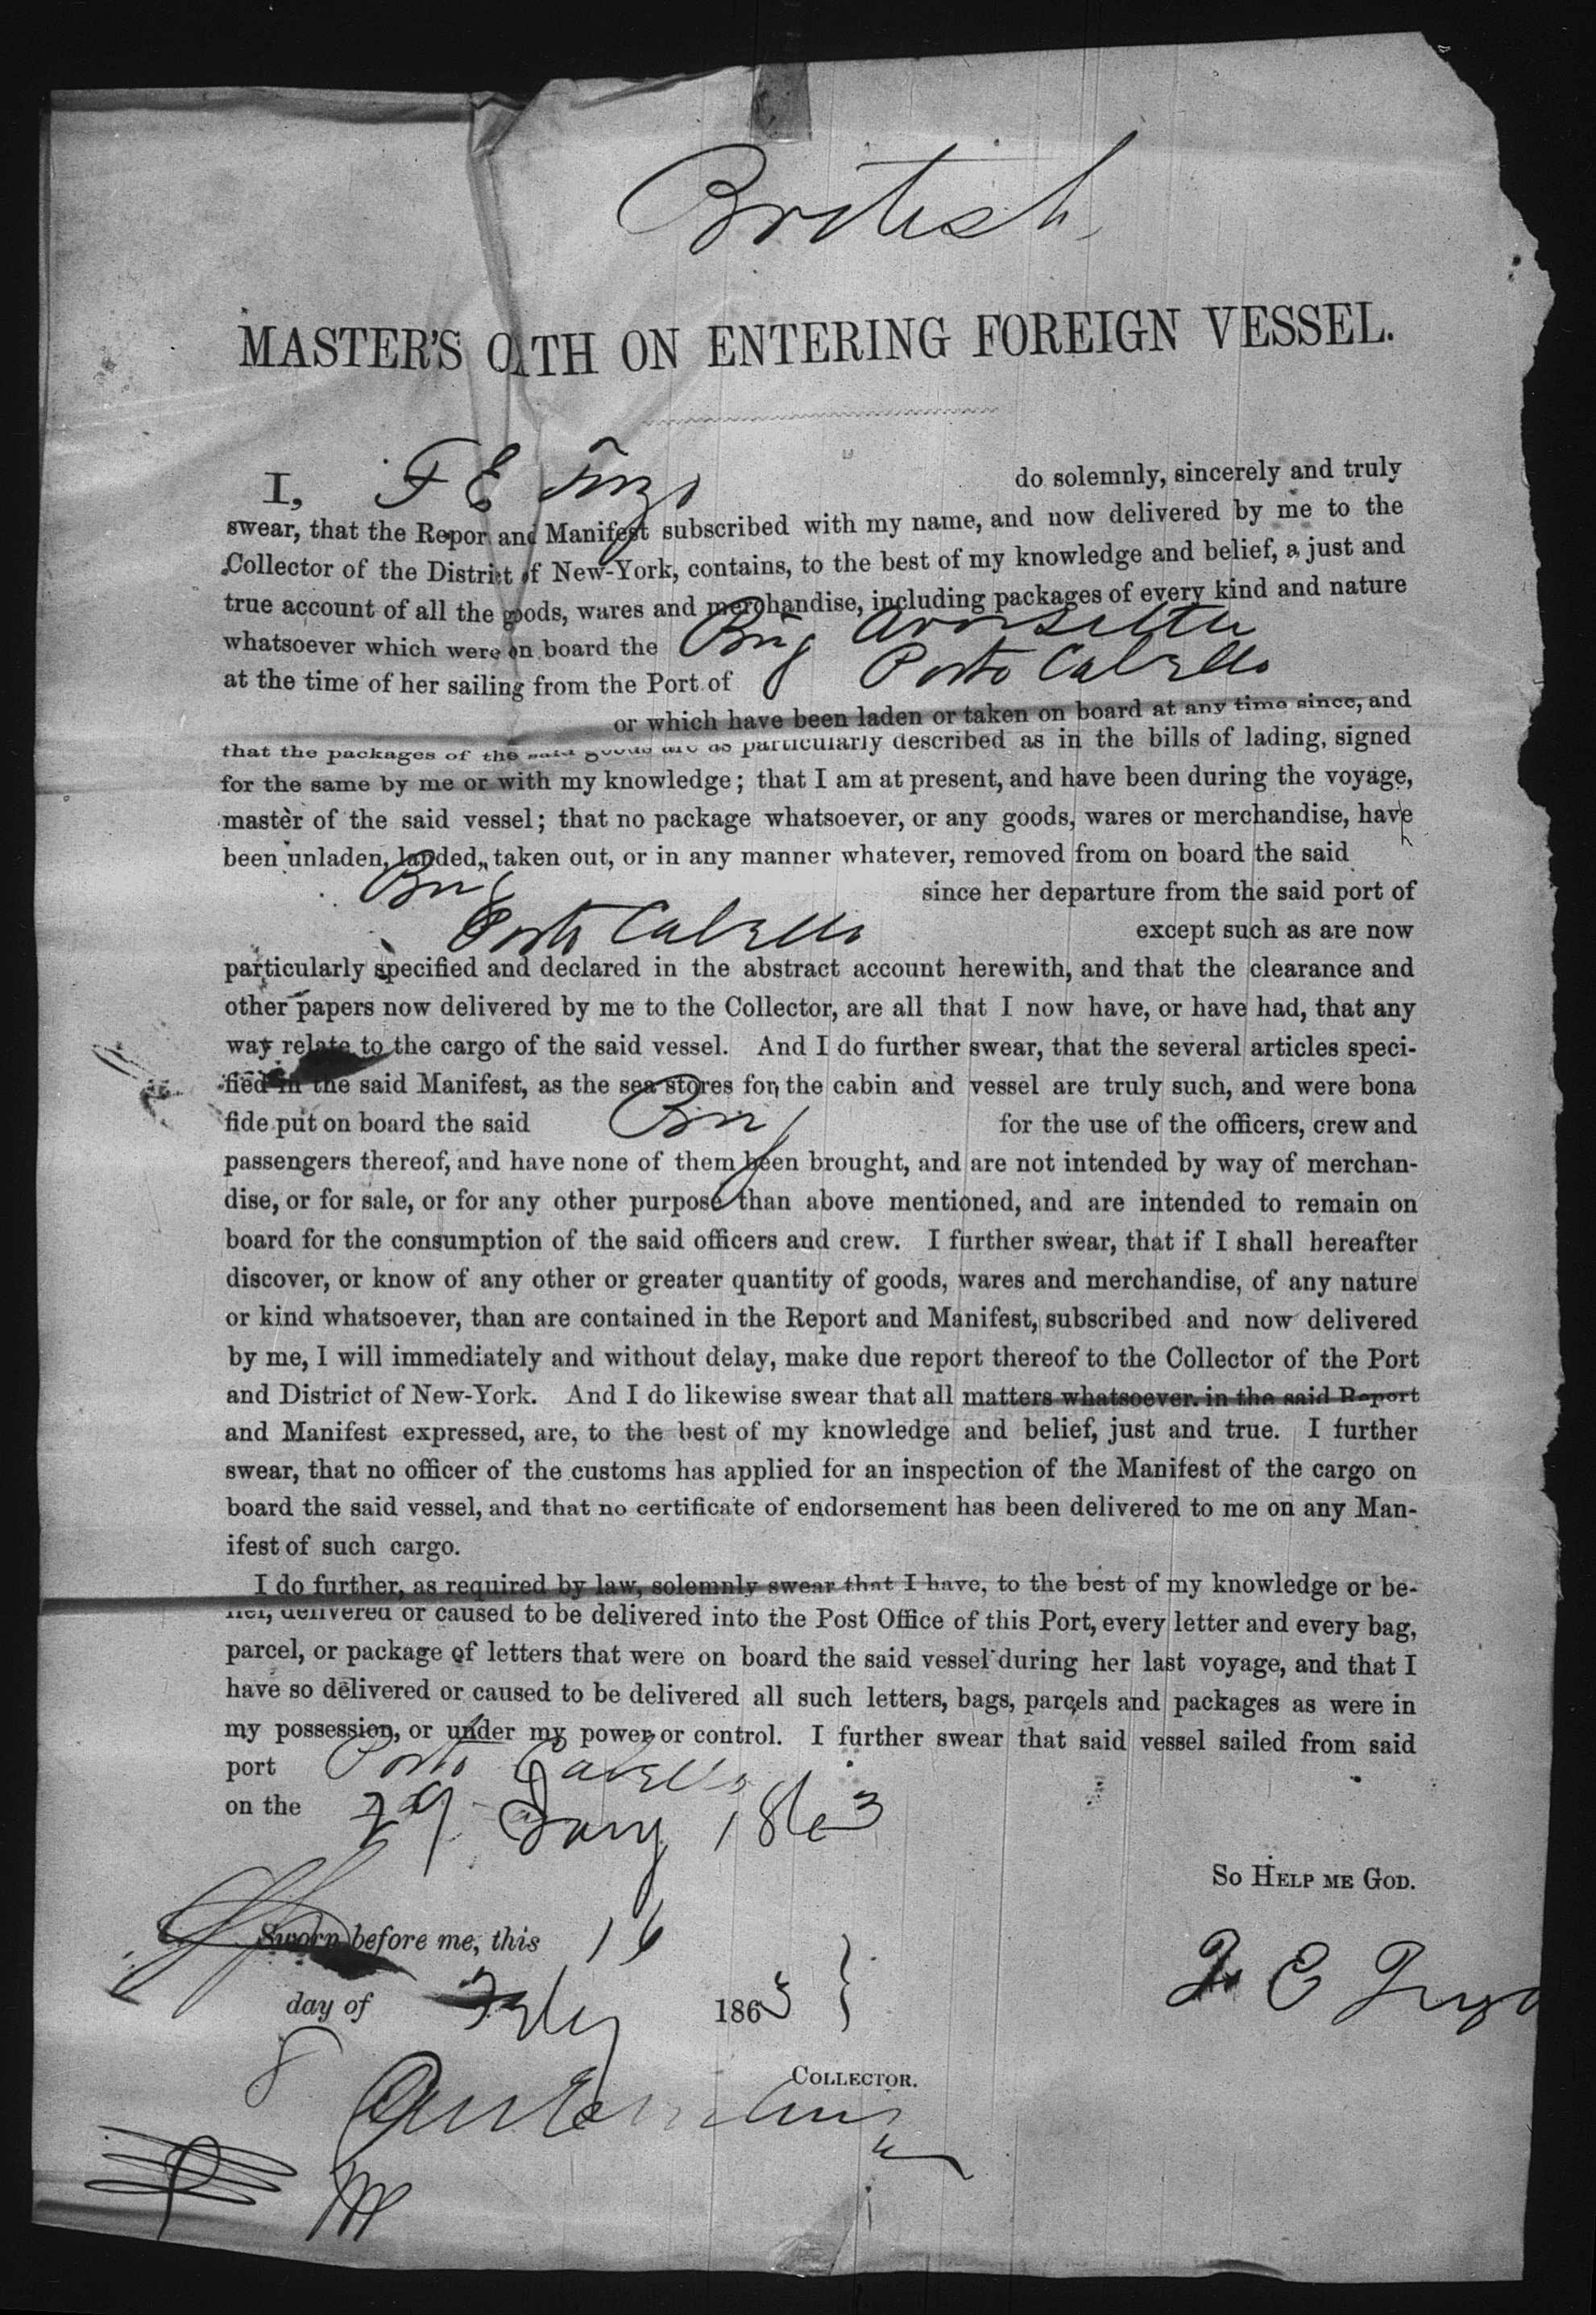 British
MASTER'S OATH ON ENTERING FOREIGN VESSEL.
I, F E do solemnly, sincerely and truly
swear, that the Repor and Manifest subscribed with my name, and now delivered by me to the
Collector of the District of New-York, contains, to the best of my knowledge and belief, a just and
true account of all the goods, wares and merchandise, including packages of every kind and nature
whatsoever which were on board the Brig
at the time of her sailing from the Port of Porto Cabello
or which have been laden or taken on board at any time since, and
that the packages of the said goods are as particularly described as in the bills of lading, signed
for the same by me or with my knowledge; that I am at present, and have been during the voyage,
master of the said vessel; that no package whatsoever, or any goods, wares or merchandise, have
been unladen, landed, taken out, or in any manner whatever, removed from on board the said
Brig since her departure from the said port of
Porto Cabello except such as are now
particularly specified and declared in the abstract account herewith, and that the clearance and
other papers now delivered by me to the Collector, are all that I now have, or have had, that any
way relate to the cargo of the said vessel. And I do further swear, that the several articles speci-
fied in the said Manifest, as the sea stores for the cabin and vessel are truly such, and were bona
fide put on board the said Brig for the use of the officers, crew and
passengers thereof, and have none of them been brought, and are not intended by way of merchan-
dise, or for sale, or for any other purpose than above mentioned, and are intended to remain on
board for the consumption of the said officers and crew. I further swear, that if I shall hereafter
discover, or know of any other or greater quantity of goods, wares and merchandise, of any nature
or kind whatsoever, than are contained in the Report and Manifest, subscribed and now delivered
by me, I will immediately and without delay, make due report thereof to the Collector of the Port
and District of New-York. And I do likewise swear that all matters whatsoever in the said Report
and Manifest expressed, are, to the best of my knowledge and belief, just and true. I further
swear, that no officer of the customs has applied for an inspection of the Manifest of the cargo on
board the said vessel, and that no certificate of endorsement has been delivered to me on any Man-
ifest of such cargo.
I do further, as required by law, solemnly swear that I have, to the best of my knowledge or be-
lief, delivered or caused to be delivered into the Post Office of this Port, every letter and every bag,
parcel, or package of letters that were on board the said vessel during her last voyage, and that I
have so delivered or caused to be delivered all such letters, bags, parcels and packages as were in
my possession, or under my power or control. I further swear that said vessel sailed from said
port Porto Cabello
on the 29 Jany 1863
So Help me God.
Sworn before me, this 16
day of Feby 1863
F E
Collector.